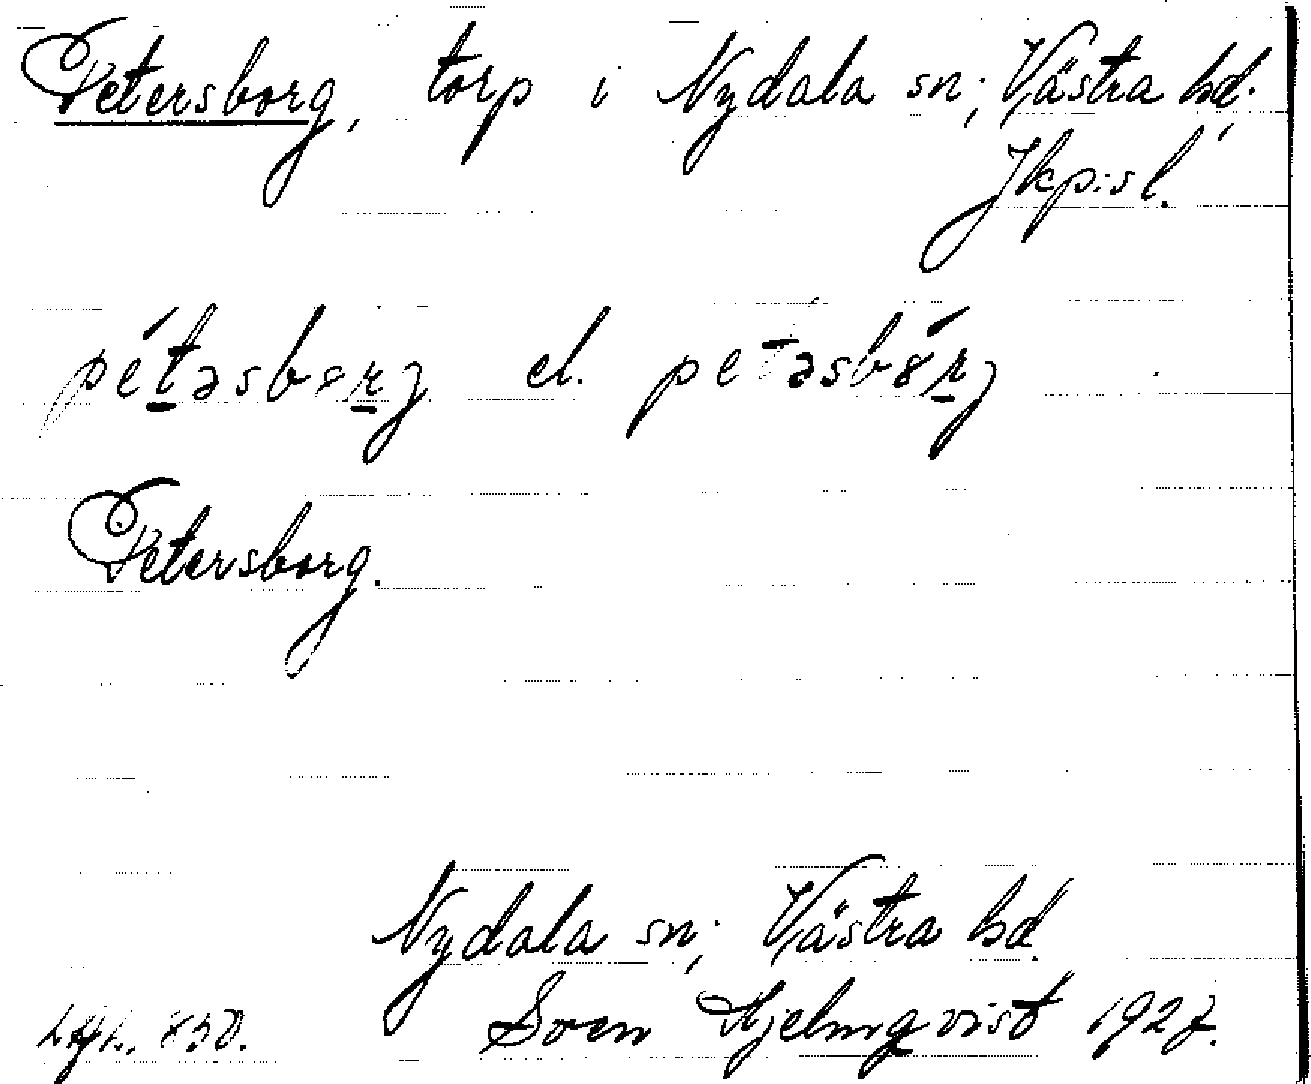 Petersborg, torp i Nydala sn; Västra hd.,
Jkp:s l.
pétəsbɵrj el. petəsbɵ́rj
Petersborg.
Nydala sn; Västra hd.
Sven Hjelmqvist 1927.